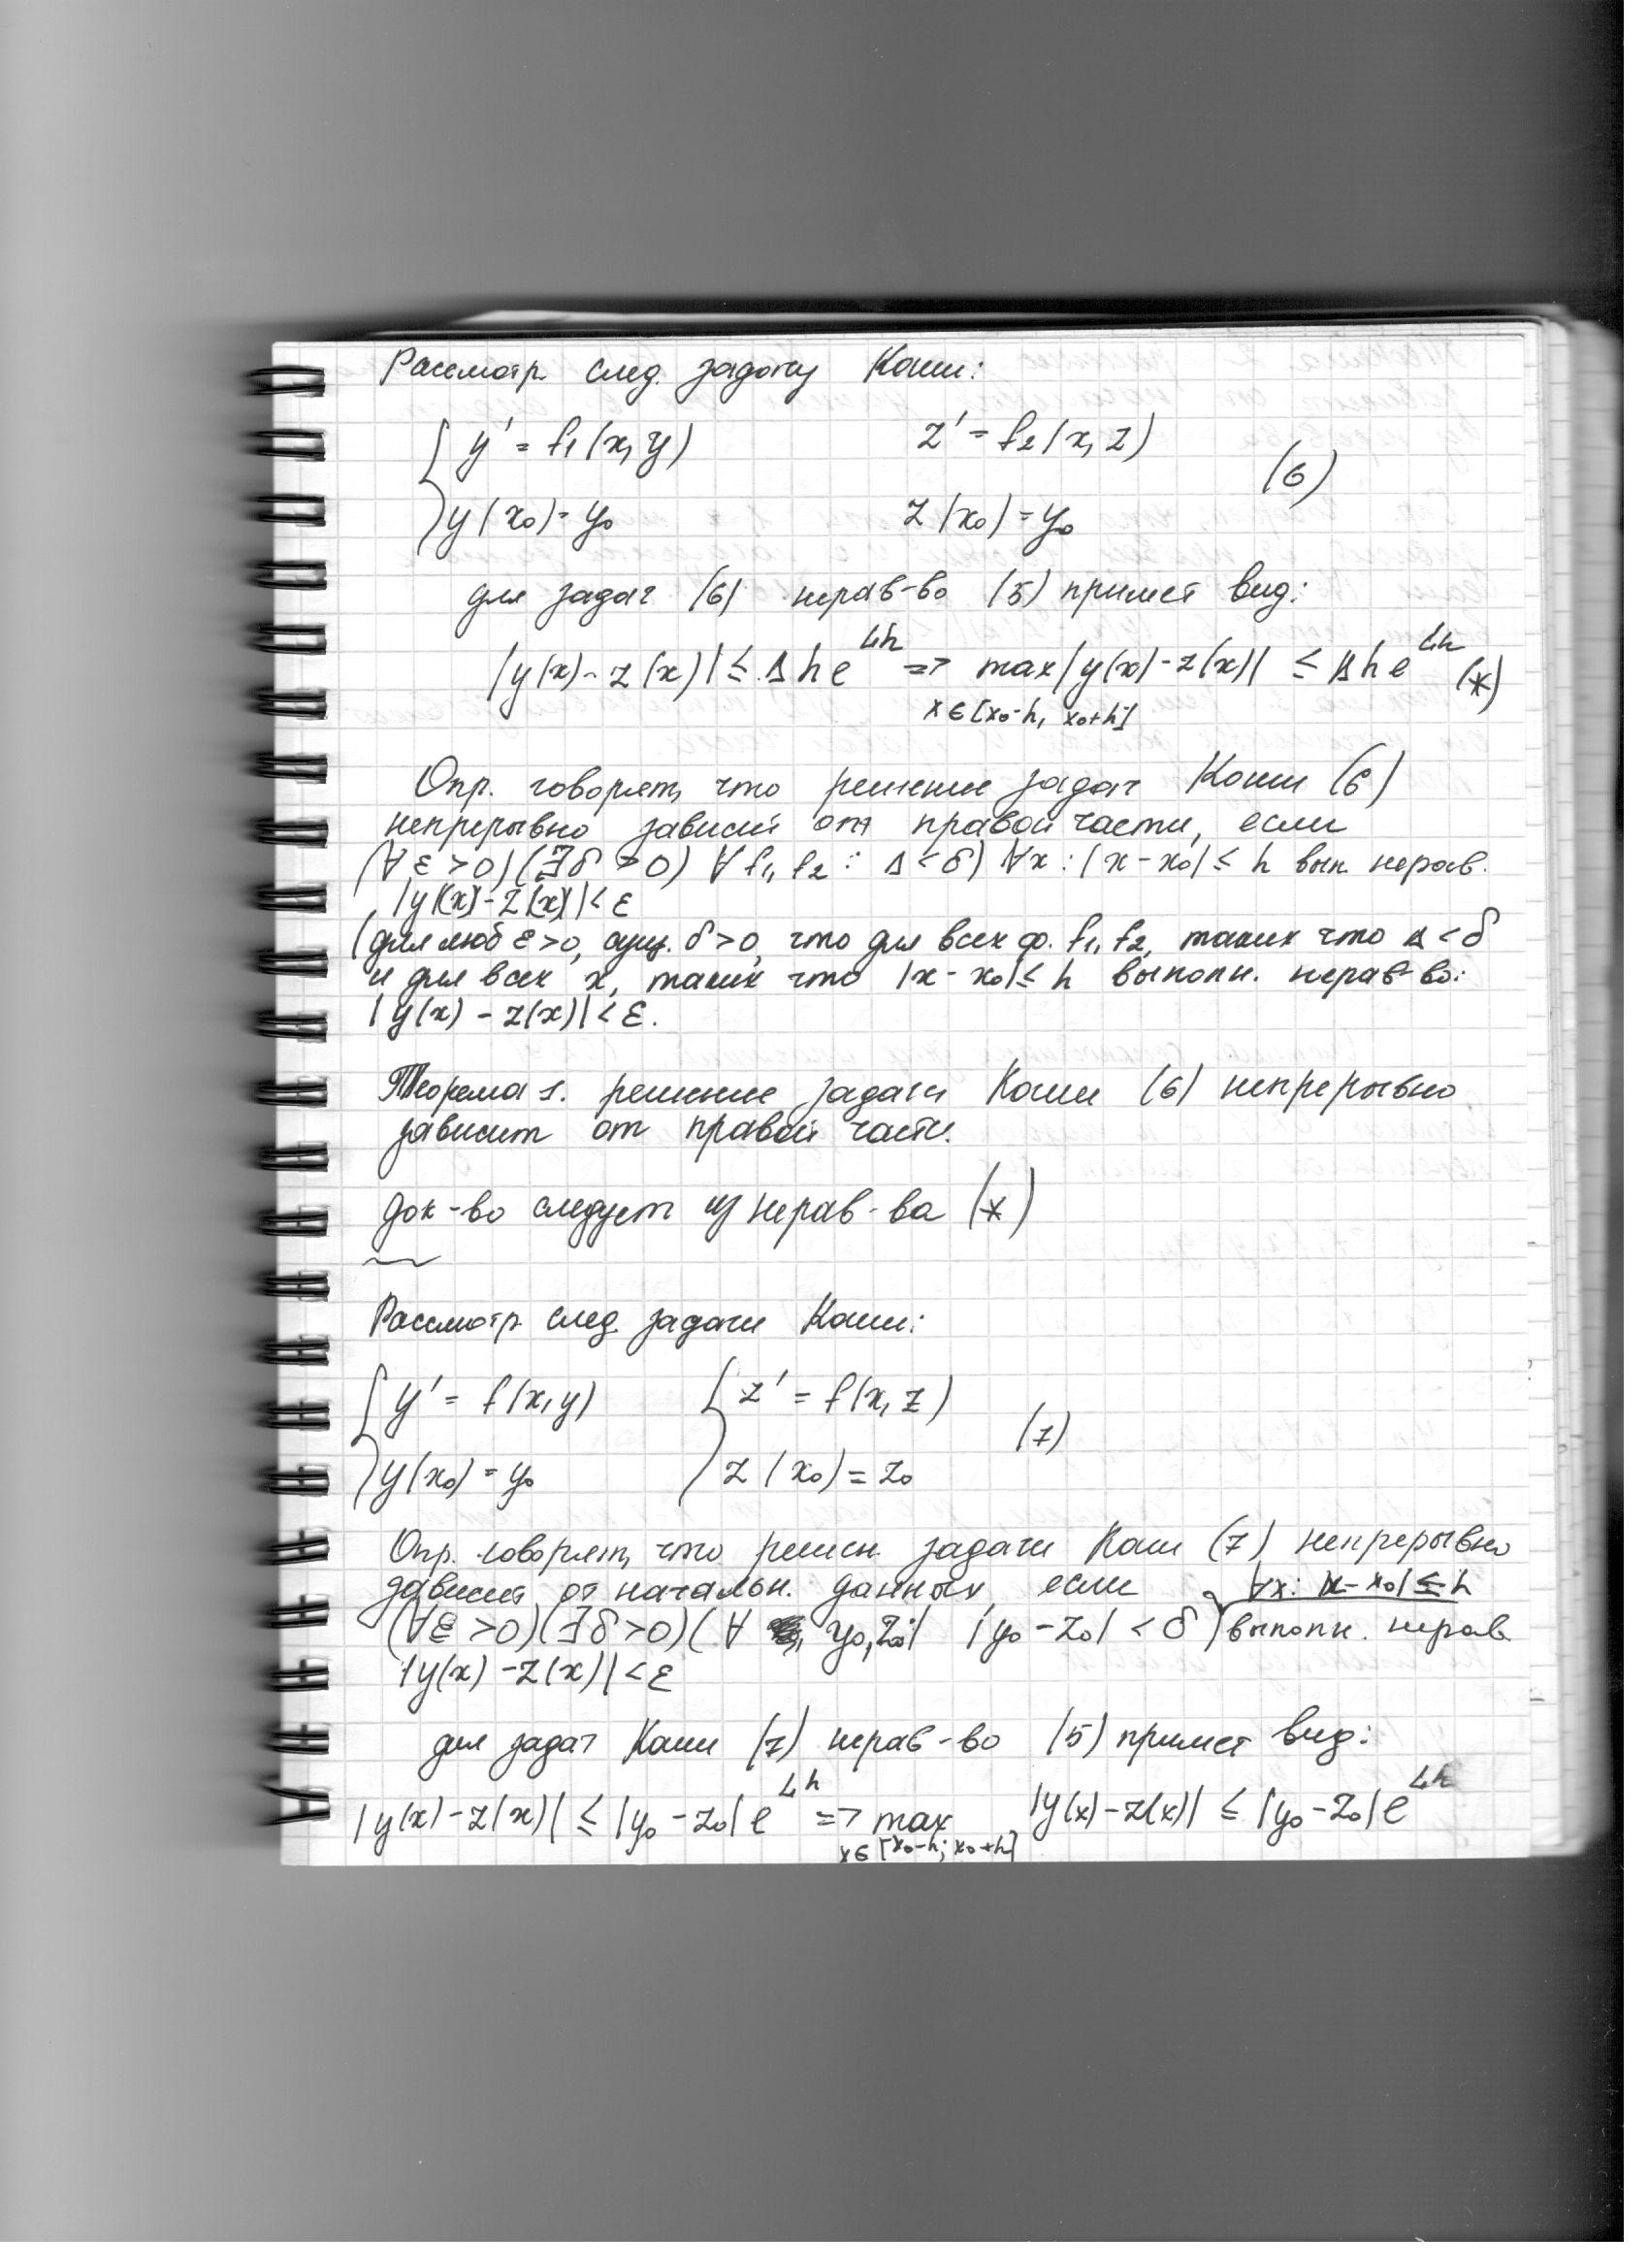 Рассмотр. след. задачу Коши:
y' = f₁(x, y) z' = f₂(x, z)
(6)
y(x₀) = y₀ z(x₀) = y₀
для задач (6) нерав-во (5) примет вид:
|y(x) - z(x)| ≤ Δ h e^{Lh} => max |y(x) - z(x)| ≤ Δ h e^{Lh} (*)
x ∈ [x₀-h, x₀+h]
Опр. говорят, что решение задач Коши (6)
непрерывно зависит от правой части, если
(∀ ε > 0) (∃ δ > 0) ∀ f₁, f₂ : Δ < δ) ∀x : |x - x₀| ≤ h вып. нерав.
|y(x) - z(x)| < ε
(для люб ε > 0, сущ. δ > 0, что для всех ф. f₁, f₂, таких что Δ < δ
и для всех x, таких что |x - x₀| ≤ h выполн. нерав-во:
|y(x) - z(x)| < ε.
Теорема 1. решение задачи Коши (6) непрерывно
зависит от правой части.
Док-во следует из нерав-ва (*)
Рассмотр. след. задачи Коши:
y' = f(x, y) z' = f(x, z)
(7)
y(x₀) = y₀ z(x₀) = z₀
Опр. говорят, что решен. задачи Коши (7) непрерывно
зависит от начальн. данных, если ∀x: |x - x₀| ≤ h
(∀ε > 0) (∃ δ > 0) (∀ y₀, z₀| |y₀ - z₀| < δ) выполн. нерав.
|y(x) - z(x)| < ε
для задач Коши (7) нерав-во (5) примет вид:
|y(x) - z(x)| ≤ |y₀ - z₀| e^{Lh} => max |y(x) - z(x)| ≤ |y₀ - z₀| e^{Lh}
x ∈ [x₀-h; x₀+h]